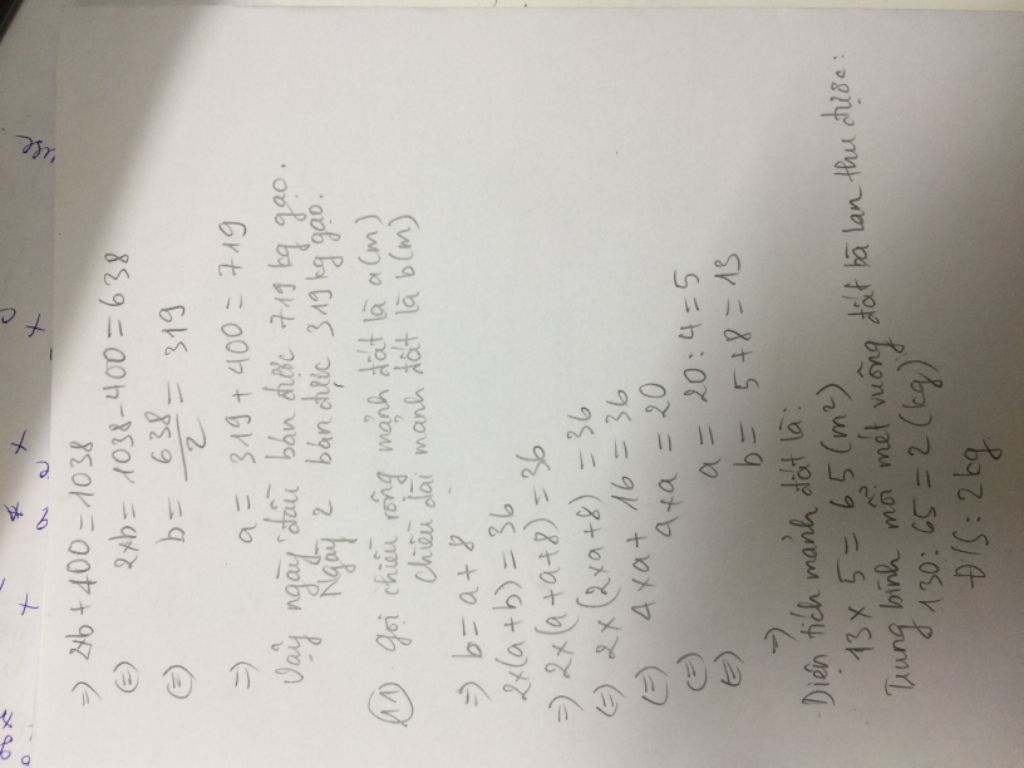 =) 2b + 400 = 1038
(=) 2xb = 1038 - 400 = 638
(=) b = 638/2 = 319
=) a = 319 + 400 = 719
Vậy ngày đầu bán được 719 kg gạo.
Ngày 2 bán được 319 kg gạo.
11 Gọi chiều rộng mảnh đất là a (m)
chiều dài mảnh đất là b (m)
=) b = a + 8
2x(a+b) = 36
=) 2x(a+a+8) = 36
(=) 2x(2xa+8) = 36
(=) 4xa + 16 = 36
4xa = 20
(=) a = 20 : 4 = 5
(=) b = 5 + 8 = 13
=)
Diện tích mảnh đất là:
13 x 5 = 65 (m²)
Trung bình mỗi mét vuông đất bà Lan thu được:
130 : 65 = 2 (kg)
Đ/S: 2 kg